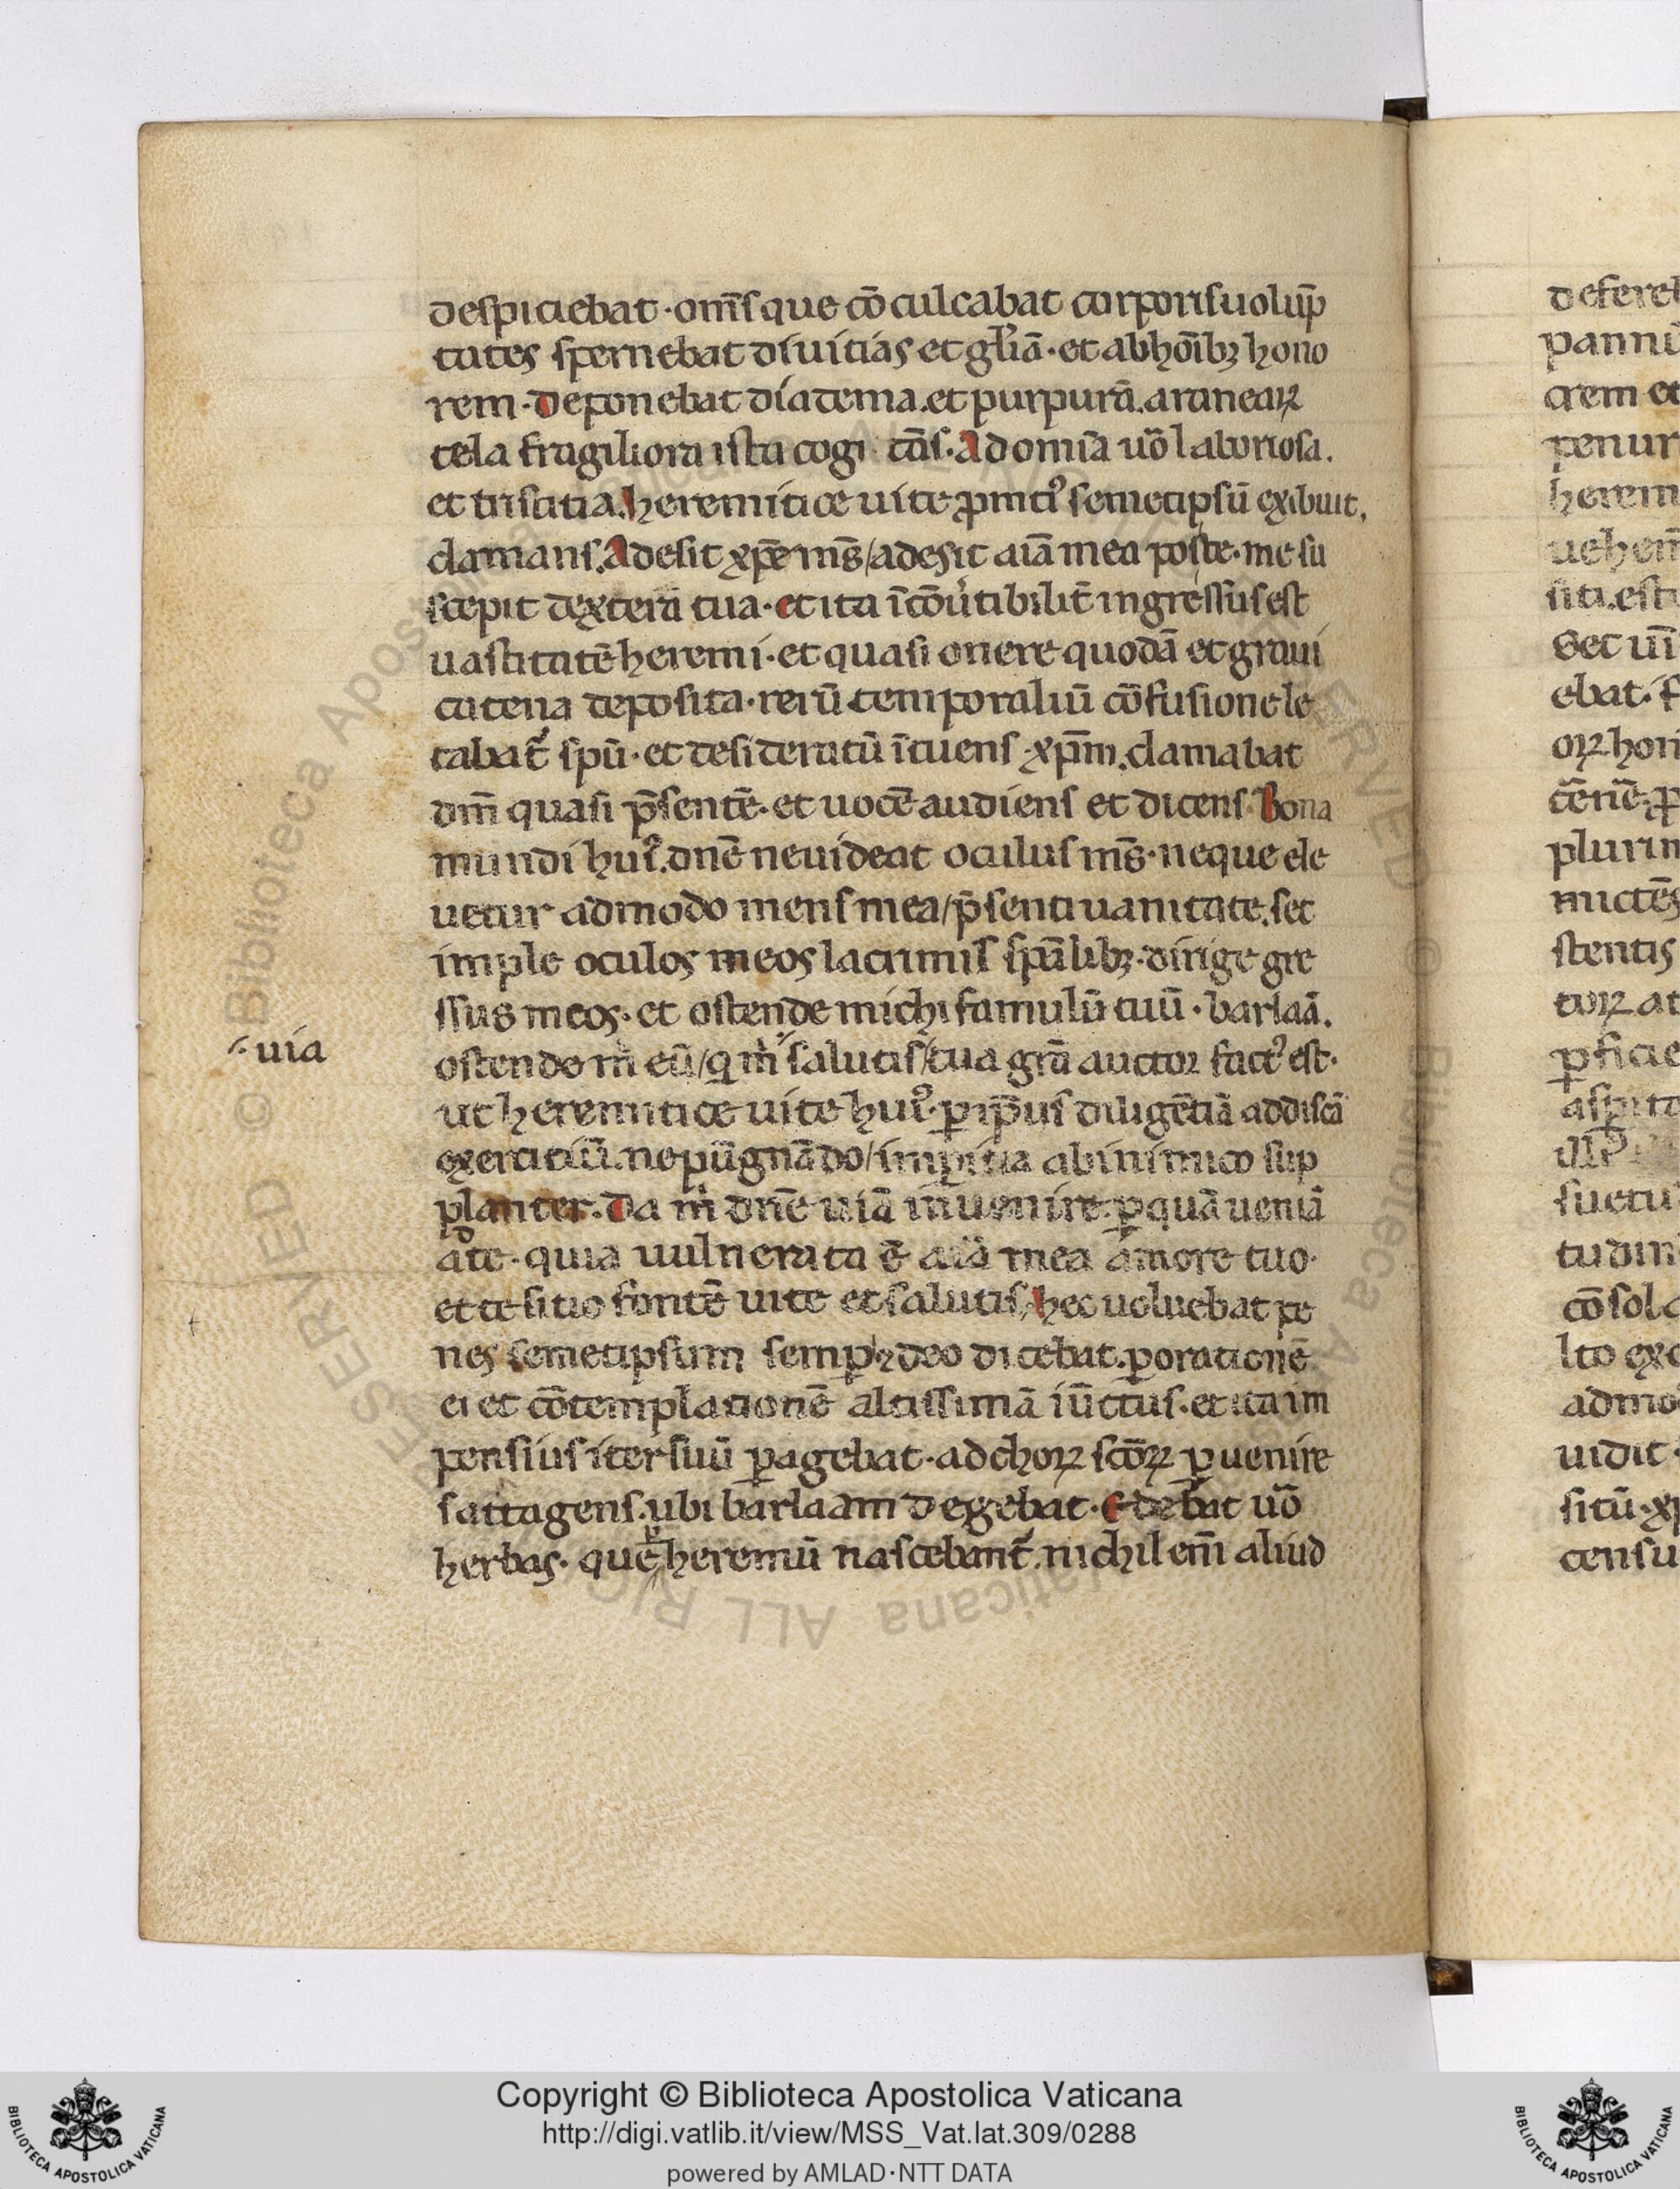 despiciebat · om̄s que cō culcabat corporis uolup̄
tates spernebat diuitias et gl̄iā · et ab hōibꝫ hono
rem · deponebat diatema . et purpurā . araneaꝝ
tela fragiliora ista cogi tās . Ad omīa uō laboriosa .
et tristitia . heremitice uite ꝓmtꝰ semetipsū exibuit .
clamans . Adesit xp̄e ms̄ / adesit aīa mea post te · me su
scepit dextera tua · et ita īcōu̓tibilit̄ ingressus est
uastitatē heremi · et quasi onere quodā et graui
catena deposita · rerū temporaliū cōfusione le
tabat̄ spū · et desideratū ītuens · xp̄m . clamabat
dm̄ quasi p̄sentē · et uocē audiens et dicens · Bona
mundi huiꝰ . dn̄e ne uideat oculus ms̄ · neque ele
uetur admodo mens mea / p̄senti uanitate . set
imple oculos meos lacrimis sp̄alibꝫ · dirige gre
ssus meos · et ostende michi famulū tuū · barlaā .
uia
ostende m̄ eū / q m̄ salutis / tua grā auctor factꝰ est ·
ut heremitice uite huiꝰ · ꝑ ip̄ius diligētiā addiscā
exercitiū . ne pūgnādo / imp̱itia ab inimico sup
planter . Da m̄ dn̄e uiā inuenire · ꝑ quā ueniā
ate · quia uulnerata ē aīa mea amore tuo ·
et te sitio fontē uite et salutis . hec uoluebat pe
nes semetipsum semp ⁊ deo dicebat . ꝑ orationē
ei et cōtemplationē altissimā iūctus · et ita im
pensius iter suū ꝑagebat · ad choꝝ scōꝝ ꝑuenire
sattagens . ubi barlaam degebat · Edebat uō
herbas · que ꝑ heremū nascebant̄ . nichil em̄ aliud
deferel
pannū
crem et
penur
herem
uehem̄
siti . esti
Set uī
ebat ·
oꝝ hon
tēnē ꝓ
plurim
mictēs
stentis
toꝝ at
ꝑficie
aspite
suetu
tudin
cōsola
lto exc
admo
uidit
situ · xp
censu
Copyright © Biblioteca Apostolica Vaticana
http://digi.vatlib.it/view/MSS_Vat.lat.309/0288
powered by AMLAD·NTT DATA
BIBLIOTECA APOSTOLICA VATICANA
BIBLIOTECA APOSTOLICA VATICANA
© Biblioteca Apostolica Vaticana ALL RIGHTS RESERVED